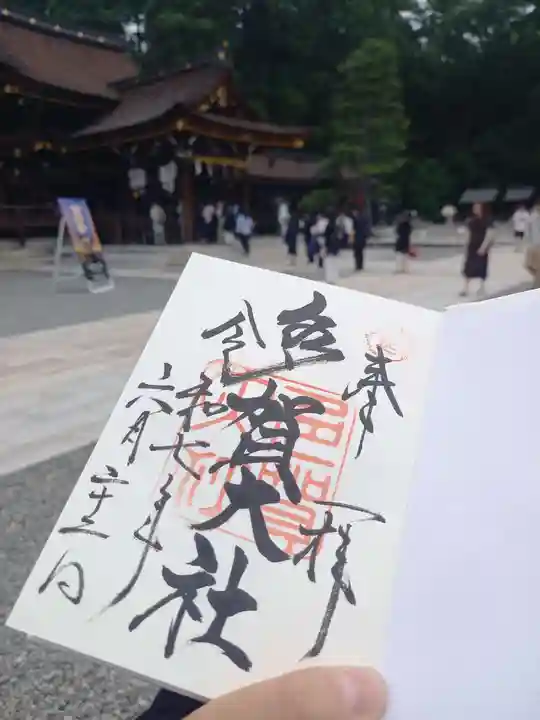 奉拝
多賀大社
令和七年
六月二十二日